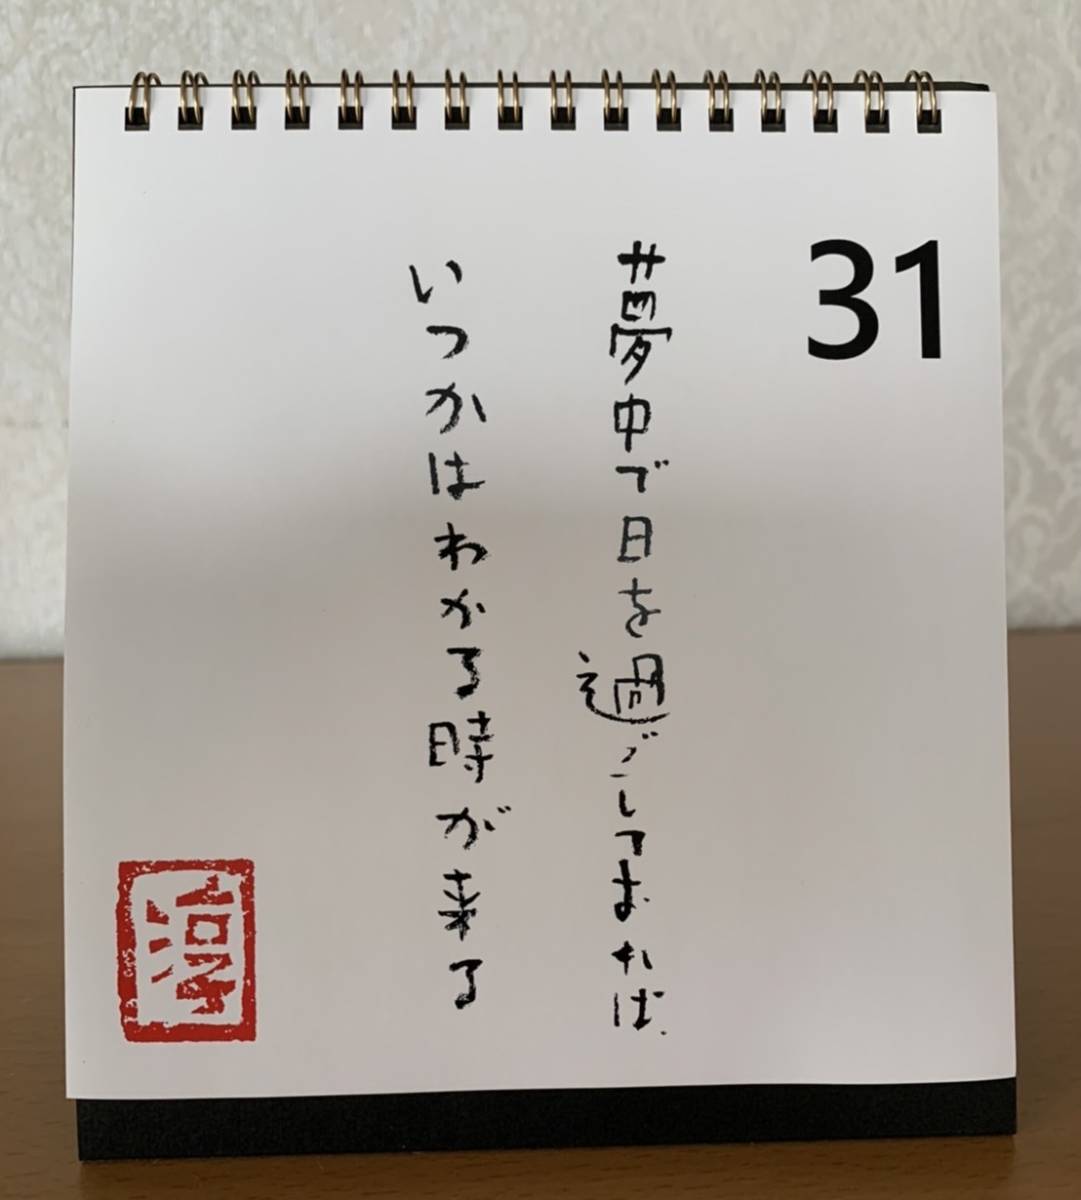 31
夢中で日を過ごしておれば、
いつかはわかる時が来る
淳